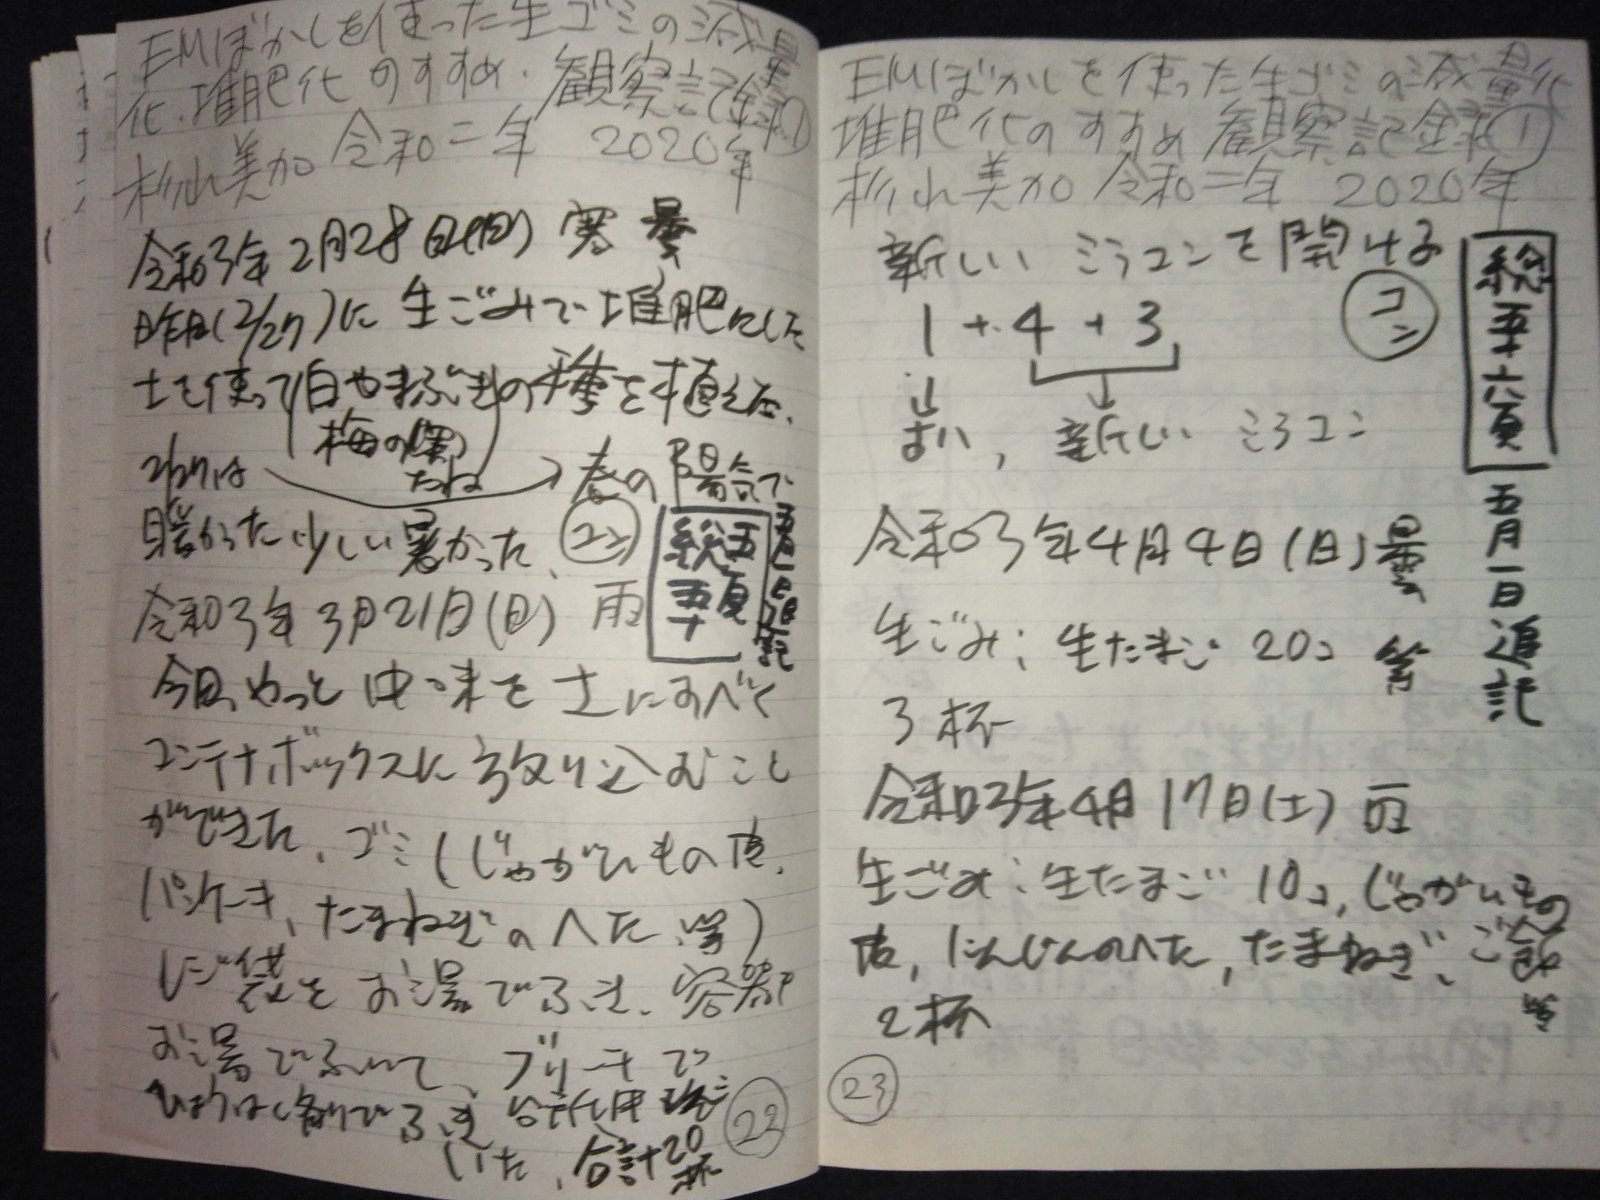 EMぼかしを使った生ゴミの減量
化・堆肥化のすすめ・観察記録
杉山美加 令和二年 2020年
令和3年2月28日(日) 寒 曇
昨日(2/27)に生ごみで堆肥にした
土を使って
の種を植えた、
梅の
たね
春の陽気で
暖かった少しい暑かった、
コン
総五十五頁
令和3年3月21日(日) 雨
今日、やっと中味を土にすべく
コンテナボックスに放り込むこと
ができた、ゴミ(じゃがいもの皮、
パンケーキ、たまねぎのへた、等)
レジ袋をお湯でふき、容器
お湯でふいて、ブリーチで
合計20杯
22
EMぼかしを使った生ゴミの減量化
堆肥化のすすめ 観察記録①
杉山美加 令和二年 2020年
新しい ミラコンを開ける
コン
1+4+3
↓ ↓
古い, 新しい ミラコン
総五十六頁
五月一日追記
令和3年4月4日(日) 曇
生ごみ: 生たまご 20コ 等
3杯
令和3年4月17日(土) 雨
生ごみ: 生たまご 10コ, じゃがいもの
皮, にんじんのへた, たまねぎ、ご飯
等
2杯
23